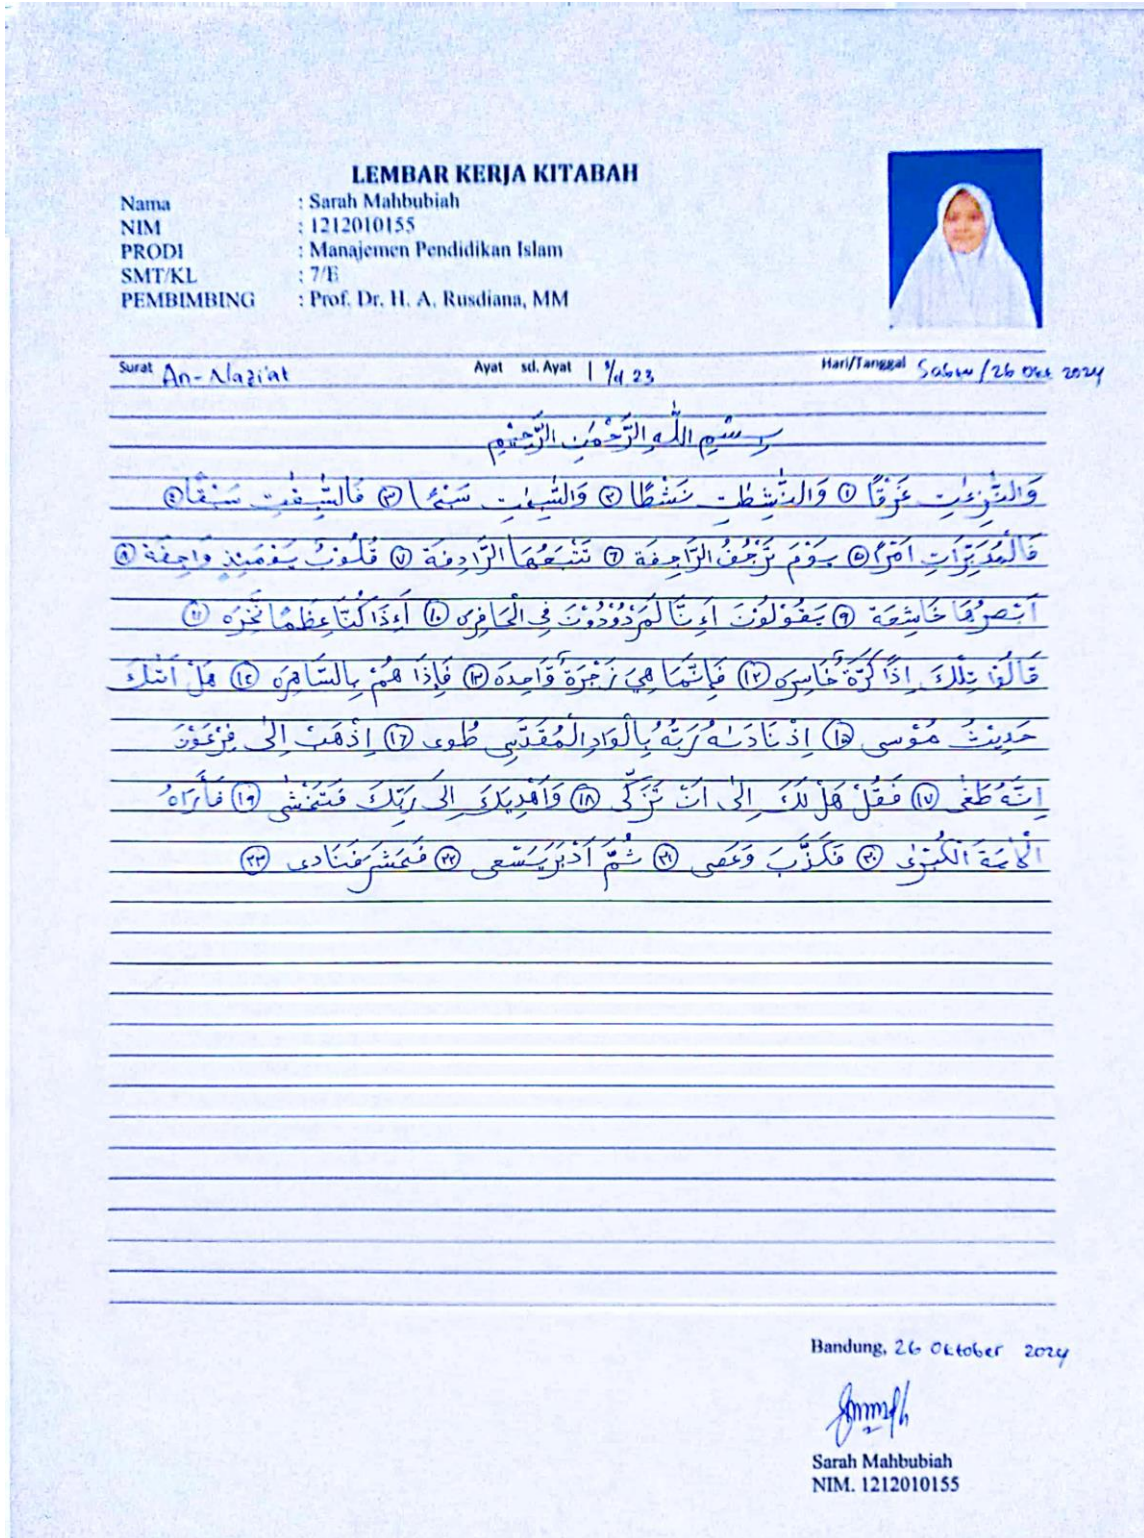 LEMBAR KERJA KITABAH
Nama : Sarah Mahbubiah
NIM : 1212010155
PRODI : Manajemen Pendidikan Islam
SMT/KL : 7/E
PEMBIMBING : Prof. Dr. H. A. Rusdiana, MM
Surat An-Nazi'at Ayat sd. Ayat 1 s/d 23 Hari/Tanggal Sabtu / 26 Okt 2024
بِسْمِ اللّٰهِ الرَّحْمٰنِ الرَّحِيْمِ
وَالنّٰزِعٰتِ غَرْقًا ١ وَالنّٰشِطٰتِ نَشْطًا ٢ وَالسّٰبِحٰتِ سَبْحًا ٣ فَالسّٰبِقٰتِ سَبْقًا ٤
فَالْمُدَبِّرَاتِ اَمْرًا ٥ يَوْمَ تَرْجُفُ الرَّاجِفَةُ ٦ تَتْبَعُهَا الرَّادِفَةُ ٧ قُلُوْبٌ يَوْمَئِذٍ وَاجِفَةٌ ٨
اَبْصَرُهَا خَاشِعَةٌ ٩ يَقُوْلُوْنَ اَءِنَّا لَمَرْدُوْدُوْنَ فِى الْحَافِرَه ١٠ أَءِذَا كُنَّا عِظَمًا نَّخِرَه ١١
قَالُوْا تِلْكَ اِذًا كَرَّةٌ خَاسِرَه ١٢ فَاِنَّمَا هِيَ زَجْرَةٌ وَاحِدَه ١٣ فَاِذَا هُمْ بِالسَّاهِرَه ١٤ هَلْ اَتٰىكَ
حَدِيْثُ مُوْسى ١٥ اِذْ نَادٰىهُ رَبُّهُ بِالْوَادِ الْمُقَدَّسِ طُوى ١٦ اِذْهَبْ اِلٰى فِرْعَوْنَ
اِنَّهُ طَغٰى ١٧ فَقُلْ هَلْ لَكَ اِلٰى اَنْ تَزَكّٰى ١٨ وَاَهْدِيَكَ اِلٰى رَبِّكَ فَتَخْشٰى ١٩ فَأَرَاهُ
الْاٰيَةَ الْكُبْرٰى ٢٠ فَكَذَّبَ وَعَصى ٢١ ثُمَّ اَدْبَرَ يَسْعى ٢٢ فَحَشَرَ فَنَادى ٢٣
Bandung, 26 Oktober 2024
Sarah Mahbubiah
NIM. 1212010155